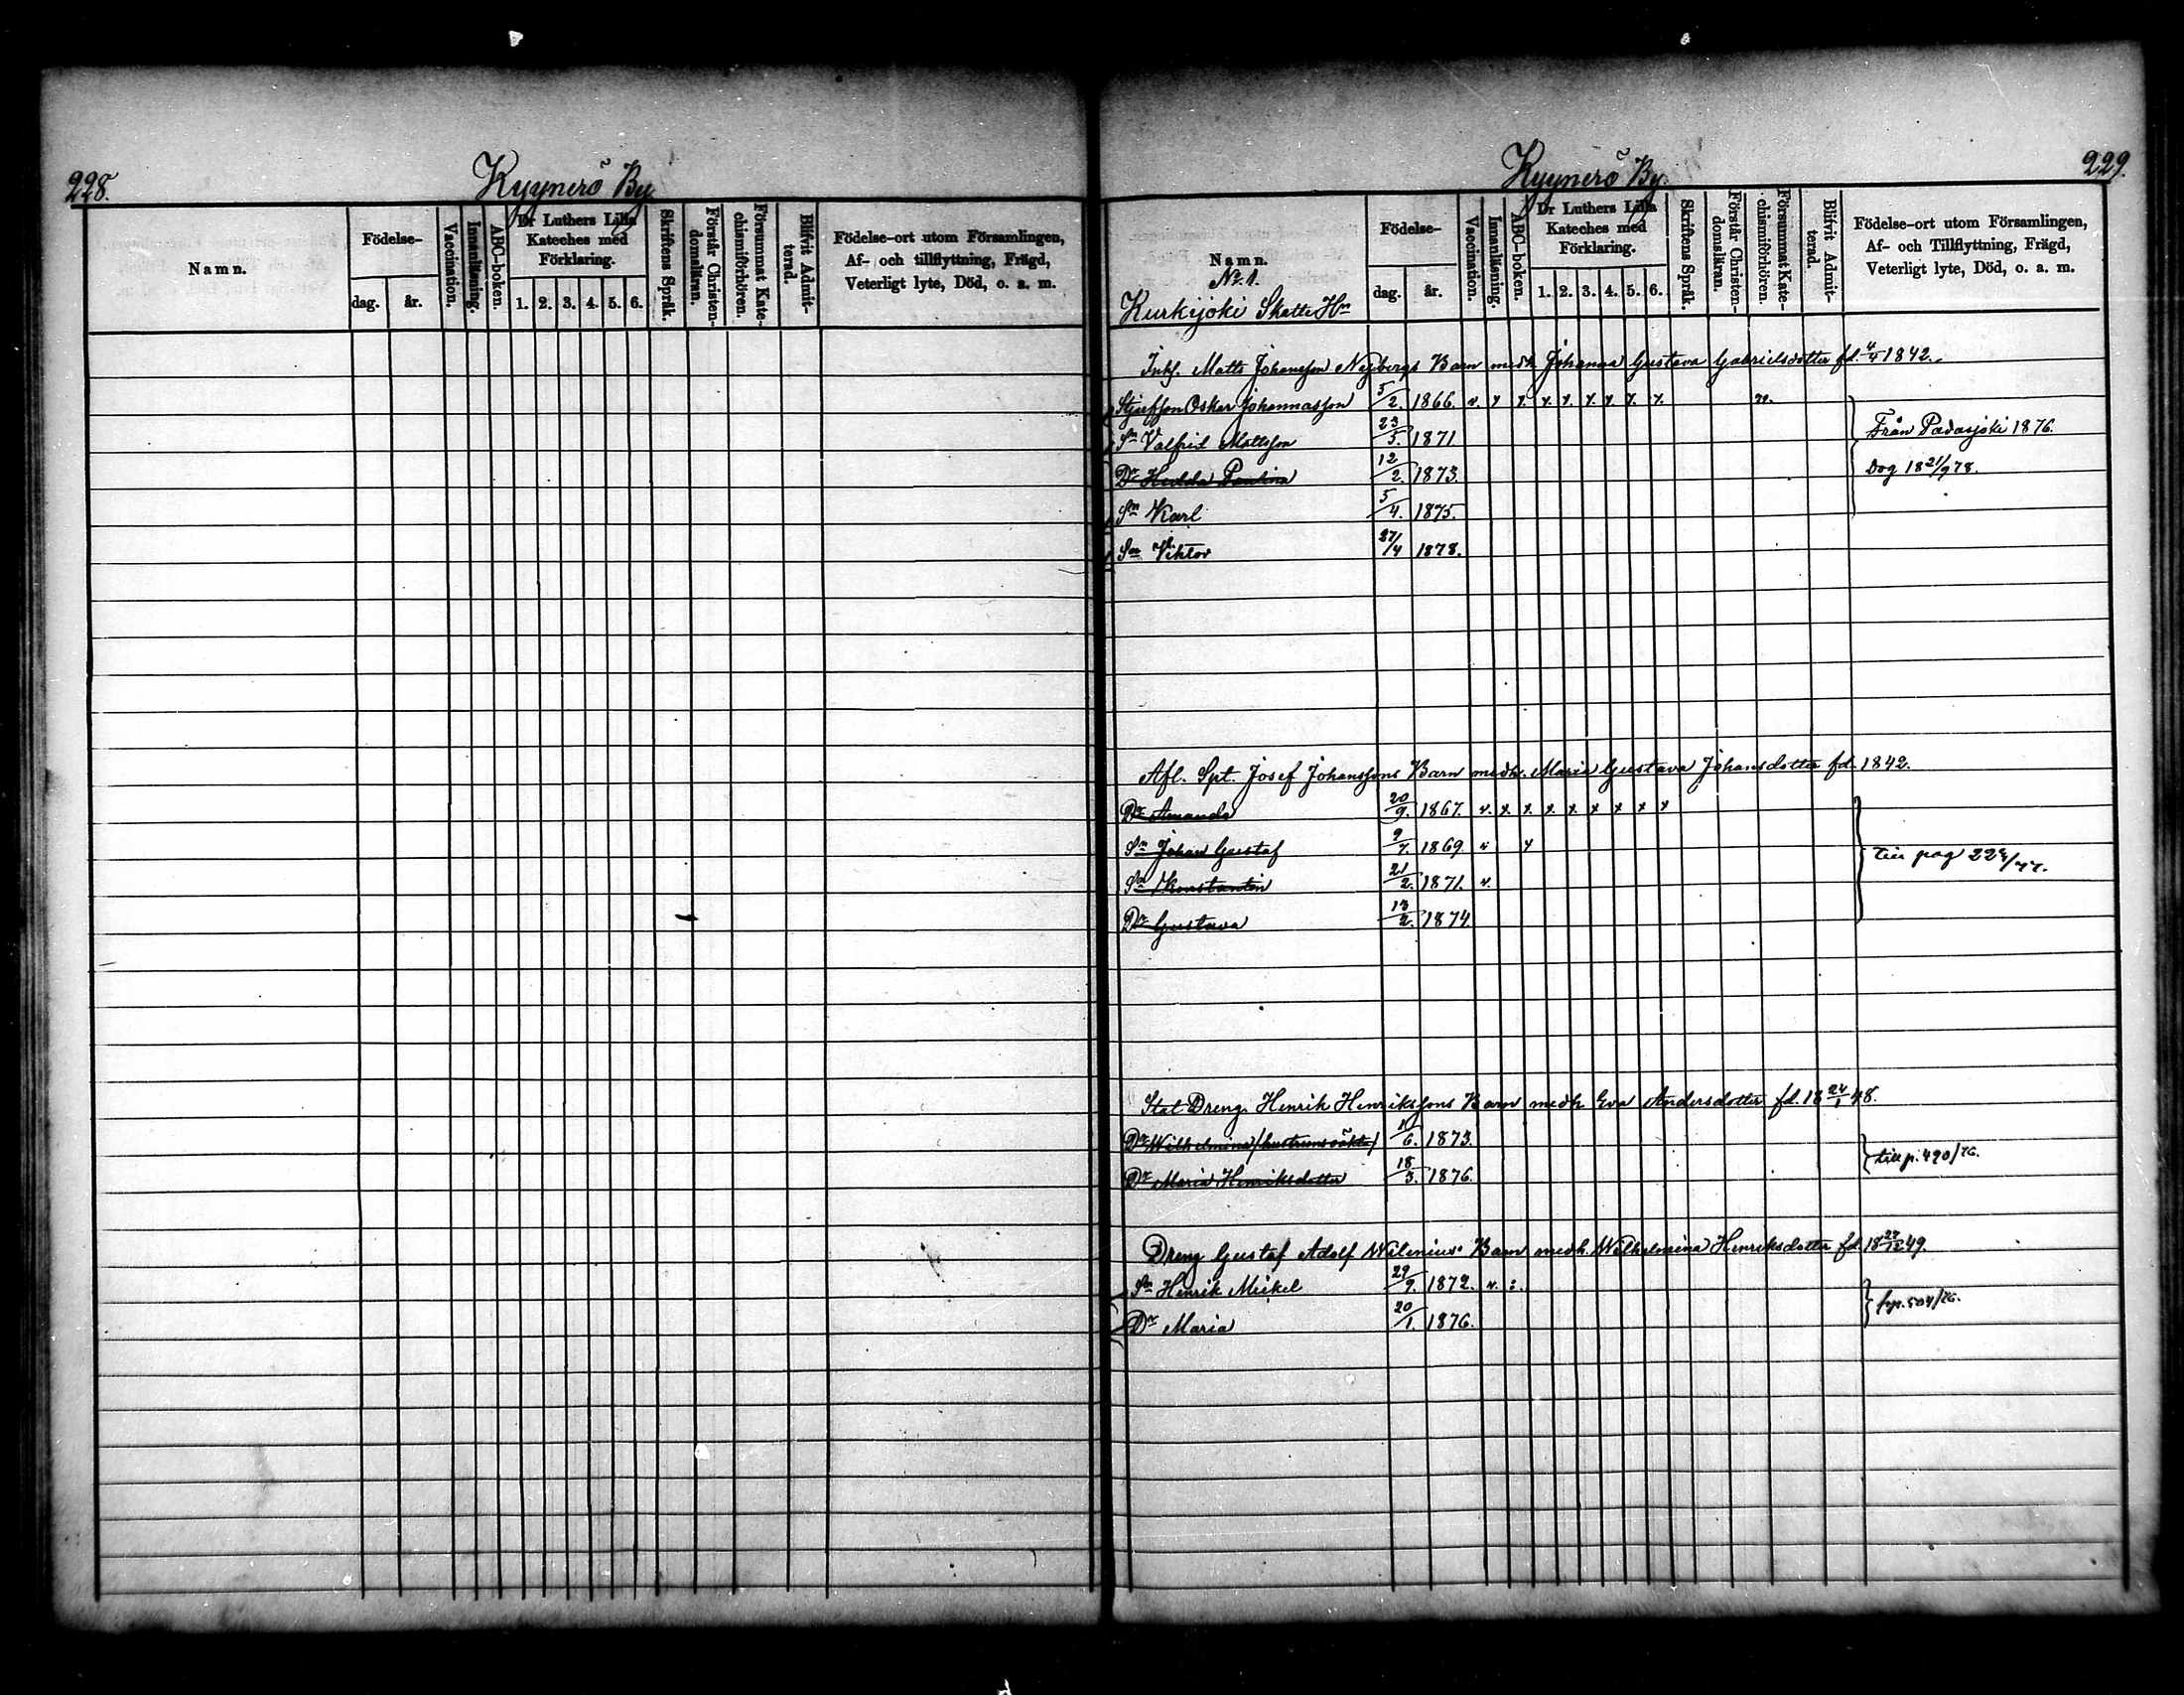 228.
Kyynerö By.
Namn.
Födelse-
dag.
år.
Vaccination.
Innanläsning.
ABC-boken.
Dr Luthers Lilla
Kateches med
Förklaring.
1. 2. 3. 4. 5. 6.
Skriftens Språk.
Förstår Christen-
domsläran.
Försummat Kate-
chismiförhören.
Blifvit Admit-
terad.
Födelse-ort utom Församlingen,
Af- och tillflyttning, Frägd,
Veterligt lyte, Död, o. a. m.
229.
Kyynerö By.
Namn.
No. 1.
Kurkijoki Skatte Hn
Födelse-
dag.
år.
Vaccination.
Innanläsning.
ABC-boken.
Dr Luthers Lilla
Kateches med
Förklaring.
1. 2. 3. 4. 5. 6.
Skriftens Språk.
Förstår Christen-
domsläran.
Försummat Kate-
chismiförhören.
Blifvit Admit-
terad.
Födelse-ort utom Församlingen,
Af- och Tillflyttning, Frägd,
Veterligt lyte, Död, o. a. m.
Inhs. Matts Johansson Nybergs Barn medh Johanna Gustava Gabrielsdotter fd. 4/4 1842.
Stjufson Oskar Johannasson 5/2. 1866.
Sn Valfrid Mattsson 23/5. 1871 Från Padasjoki 1876.
Dr Hedda Paulina 12/2. 1873. Dog 18 21/9 78.
Sn Karl 5/4. 1875.
Sn Viktor 27/4 1878.
Afl. Spt. Josef Johanssons Barn medh. Maria Gustava Johansdotter fd. 1842.
Dr Amanda 20/9. 1867.
Sn Johan Gustaf 9/7. 1869
Sn Konstantin 21/2. 1871.
Dr Gustava 13/2. 1874.
Stat Dreng. Henrik Henrikssons Barn medh Eva Andersdotter fd. 18 24/1 48.
Dr Wilhelmina (hustruns oäkta) 11/6. 1873.
Dr Maria Henriksdotter 18/3. 1876. till p. 490/76.
Dreng Gustaf Adolf Wilenius Barn medh. Wilhelmina Henriksdotter fd 18 27/12 49.
Sn Henrik Mickel 29/9. 1872.
Dr Maria 20/1. 1876. frp. 504/76.